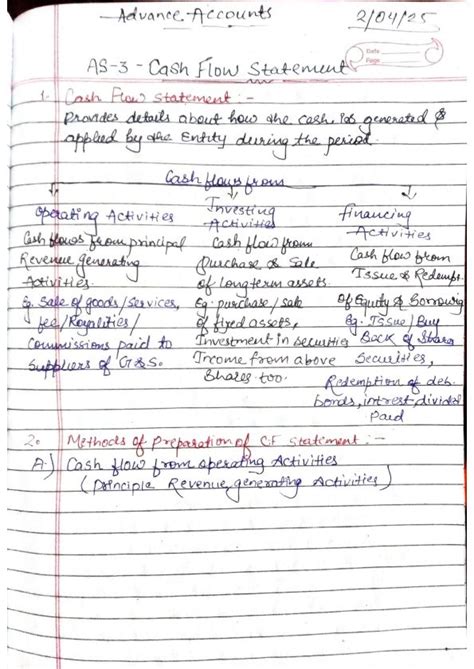 Advance Accounts
2/04/25
Date
Page
AS-3 - Cash Flow Statement
1. Cash Flow Statement :-
Provides details about how the cash is generated &
applied by the Entity during the period.
Cash flows from
Operating Activities
Cash flows from principal
Revenue generating
Activities.
Eg. Sale of goods/services,
fee/Royalities/
Commissions paid to
Suppliers of G&S.
Investing
Activities
Cash flow from
Purchase & Sale
of longterm assets.
Eg: purchase/sale
of fixed assets,
Investment in securities
Income from above
Shares too.
Financing
Activities
Cash flow from
Issue & Redempt.
of Equity & Borrowing
Eg: Issue/Buy
Back of Shares
Securities,
Redemption of deb.
bonds, interest, divided
Paid
2. Methods of Preparation of C.F statement :-
A.) Cash flow from operating Activities
(Principle Revenue generating Activities)